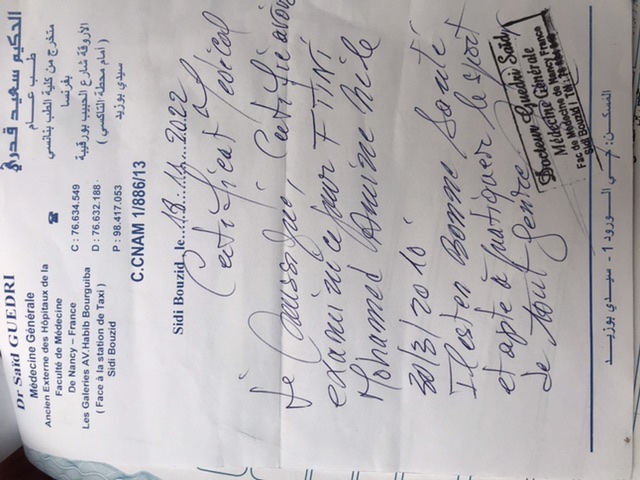 Dr Saïd GUEDRI
Médecine Générale
Ancien Externe des Hôpitaux de la
Faculté de Médecine
De Nancy – France
Les Galeries AV. Habib Bourguiba
( Face à la station de Taxi )
Sidi Bouzid
☎
C : 76.634.549
D : 76.632.188
P : 98.417.053
الحكيم سعيد قدري
طب عام
متخرج من كلية الطب بنانسي
بفرنسا
الأروقة شارع الحبيب بورقيبة
( أمام محطة التاكسي )
سيدي بوزيد
C.CNAM 1/886/13
Sidi Bouzid , le 18.11.2022
Certificat Médical
Je soussigné, Certifie avoir
examiné ce jour FTINI
Mohamed Amine né le
30/3/2010
Il est en Bonne Santé
et apte à pratiquer le sport
de tout genre
Docteur Guedri Saïd
Médecine Générale
Fac de Médecine de Nancy France
Sidi Bouzid
المسكن : حي الورود 1 - سيدي بوزيد